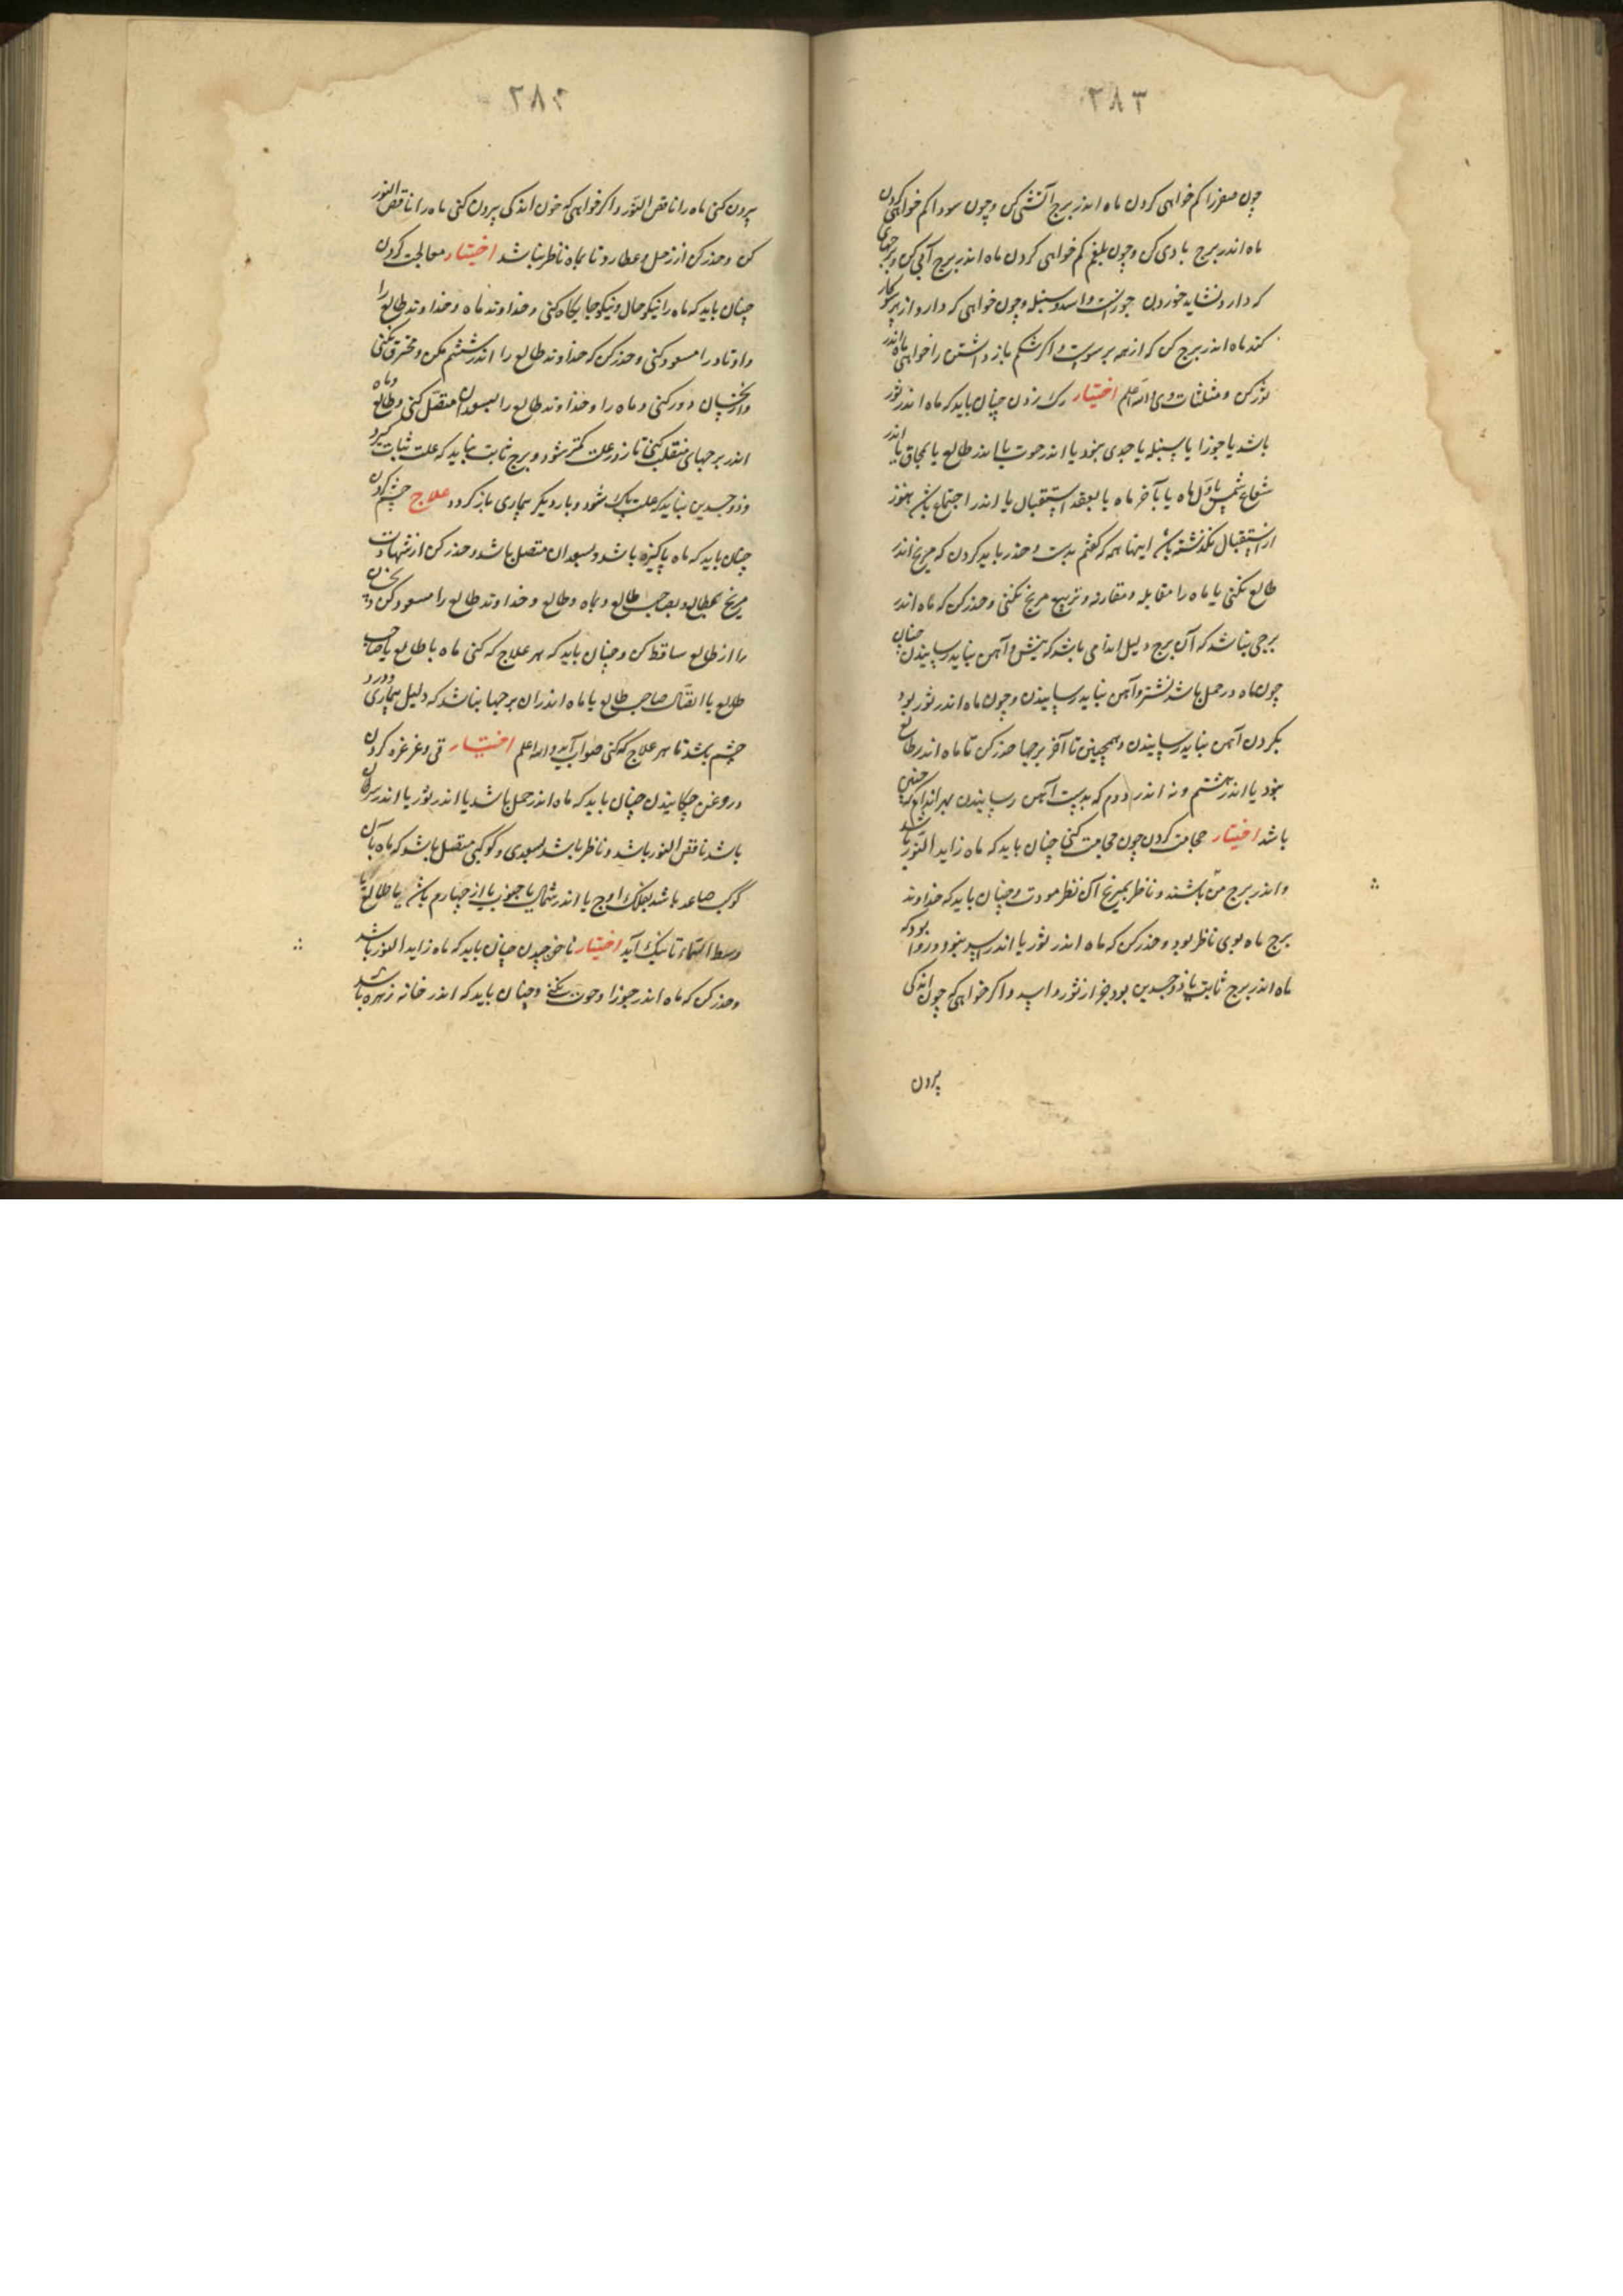 ٢٨٣
چون صفرا کم خواهی کردن ماه اندر برج آتشی کن و چون سودا کم خواهی کردن
ماه اندر برج بادی کن و چون بلغم کم خواهی کردن ماه اندر برج آبی کن و برجهای
که دارو نشاید خوردن جوزاست و اسد و سنبله و چون خواهی که دارو از هر سو کار
کند ماه اندر برج کن که از همه بر سوست و اگر شکم باز داشتن را خواهی ماه اندر
ثور کن و مثلثات وی والله اعلم اختیار رک زدن چنان باید که ماه اندر ثور
باشد یا جوزا یا سنبله یا جدی بود یا اندر حوت یا اندر طالع یا بمحاق یا اندر
شعاع شمس باول ماه یا بآخر ماه یا بعقد استقبال یا اندر اجتماع باش هنوز
از استقبال نکذشته باش اینها همه که کفتم بدست و حذر باید کردن که مریخ اندر
طالع نکنی یا ماه را مقابله و مقارنه و تربیع مریخ نکنی و حذر کن که ماه اندر
برجی نباشد که آن برج دلیل اندامی باشد که نیش و آهن نباید رسانیدن چنان
چون ماه در حمل باشد نشتر و آهن نباید رسانیدن و چون ماه اندر ثور بود
بکردن آهن نباید رسانیدن و همچنین تا آخر برجها حذر کن تا ماه اندر طالع
نبود یا اندر هشتم و نه اندر دوم که بدست آهن رسانیدن بهر اندام که چنین
باشد اختیار حجامت کردن چون حجامت کنی چنان باید که ماه زاید النور باشد
و اندر برج باشند و ناظر بمریخ آن نظر مودت و چنان باید که خداوند
برج ماه بوی ناظر بود و حذر کن که ماه اندر ثور یا اندر اسد نبود و روا بود که
ماه اندر برج ثابت یا ذوجسدین بود جز از ثور و اسد و اگر خواهی که چون اندکی
بیرون
٢٨٤
بیرون کنی ماه را ناقص النور و اگر خواهی که خون اندکی بیرون کنی ماه را ناقص النور
کن و حذر کن از زحل و عطارد تا بماه ناظر نباشد اختیار معالجت کردن
چنان باید که ماه را نیکو حال و نیکو جایکاه کنی و خداوند ماه و خداوند طالع را
و اوتاد را مسعود کنی و حذر کن که خداوند طالع را اندر ششم مکن و محترق نکنی
و از نحسان دور کنی و ماه را و خداوند طالع را بسعدان متصل کنی و ماه و طالع
اندر برجهای منقلب کنی تا زود علت کمتر شود و برج ثابت نباید که علت ثبات کیرد
و ذوجسدین نباید که علت پاک شود و بار دیکر بیماری باز کردد علاج چشم کردن
چنان باید که ماه پاکیزه باشد و بسعدان متصل باشد و حذر کن از شهادت
مریخ بطالع و بصاحب طالع و بماه و طالع و خداوند طالع را مسعود کن و نحسان
را از طالع ساقط کن و چنان باید که هر علاج که کنی ماه با طالع یا صاحب
طالع یا اتصال صاحب طالع یا ماه اندر ان برجها نباشد که دلیل بیماری و درد
چشم باشد تا هر علاج که کنی صواب آید والله اعلم اختیار قی و غرغره کردن
و روغن چکانیدن چنان باید که ماه اندر حمل باشد یا اندر ثور یا اندر سرطان
باشد ناقص النور باشد و ناظر باشد بسعدی و کوکبی متصل باشد که ماه با آن
کوکب صاعد باشد بفلک اوج یا اندر شمال یا جنوب یا از چهارم باش یا طالع یا
وسط السماء تا نیک آید اختیار ناخن چیدن چنان باید که ماه زاید النور باشد
و حذر کن که ماه اندر جوزا و حوت نکنی و چنان باید که اندر خانه زهره باشد